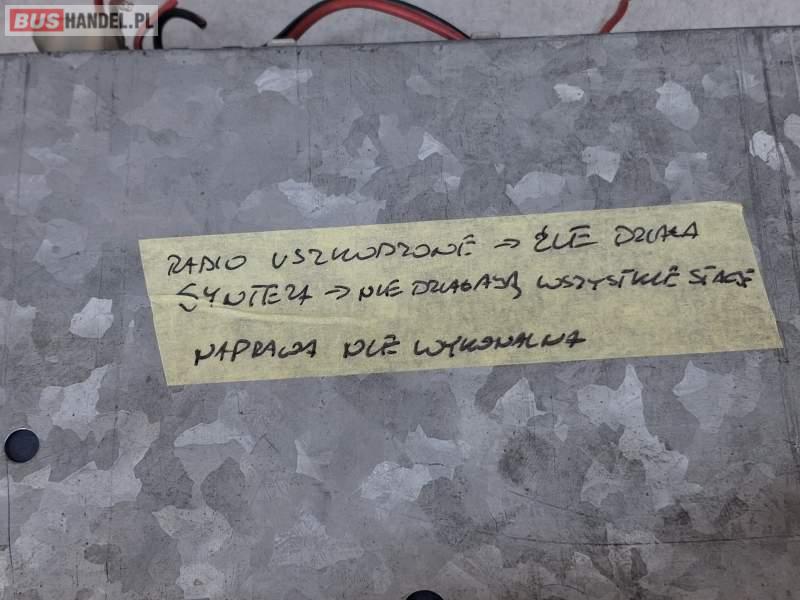 BUSHANDEL.PL
RADIO USZKODZONE → ŹLE DZIAŁA
SYNTEZA → NIE DZIAŁAJĄ WSZYSTKIE STACJE
NAPRAWA NIE WYKONALNA